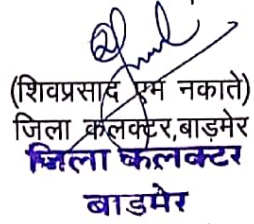 (शिवप्रसाद एम नकाते)
जिला कलक्टर,बाड़मेर
जिला कलक्टर
बाडमेर